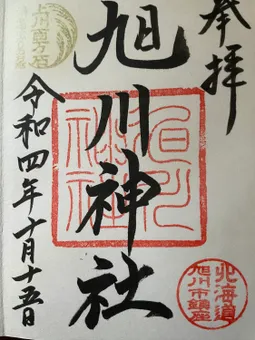 奉拝
旭川神社
旭川神社
令和四年十月十五日
北海道
旭川市鎮座